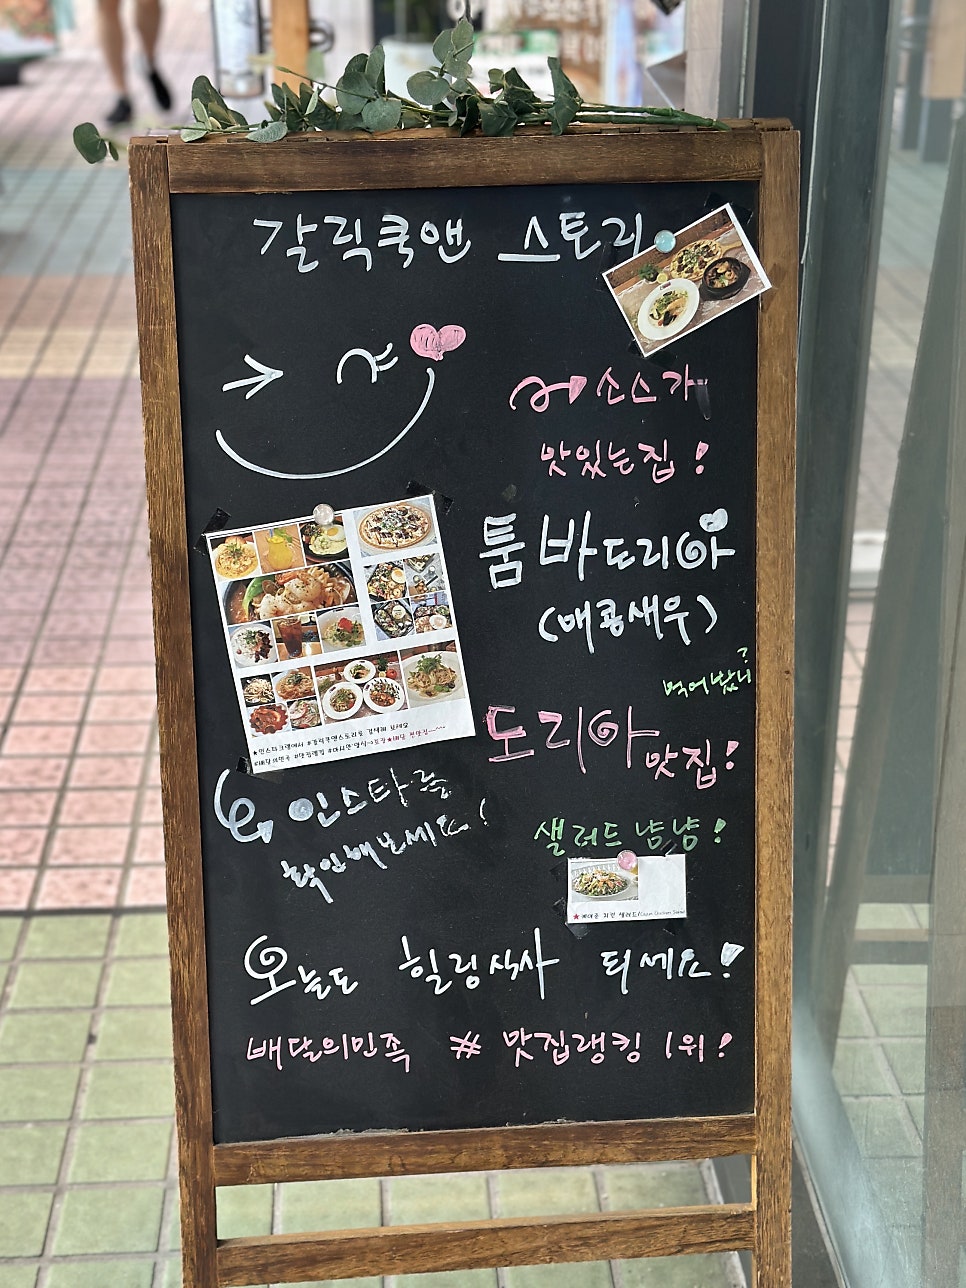 갈릭쿡앤 스토리
소스가
맛있는집!
툼바도리아
(매콤새우)
먹어봤니?
도리아
맛집!
인스타를
확인해보세요!
샐러드 냠냠!
오늘도 힐링식사 되세요!
배달의민족 # 맛집랭킹 1위!